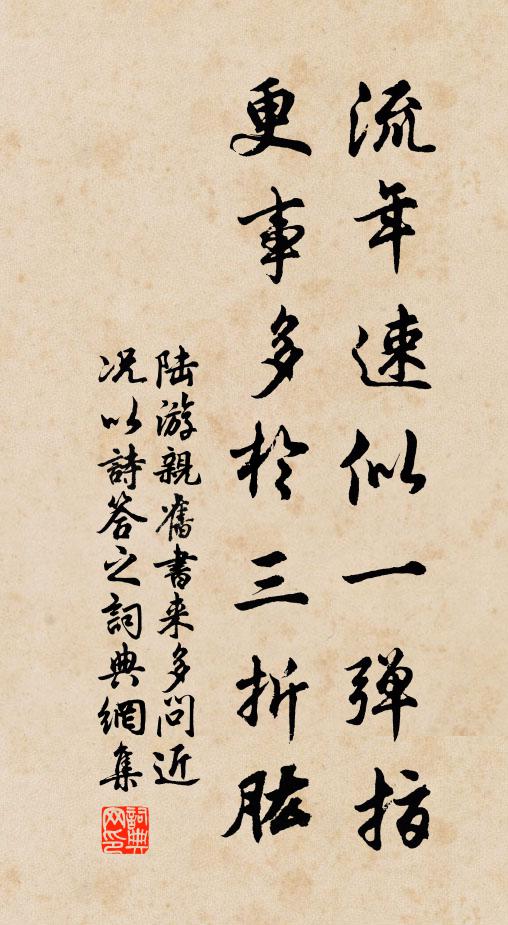 流年速似一弹指
更事多於三折肱
陆游親舊書来多問近
况以詩答之詞典網集
詞典网印